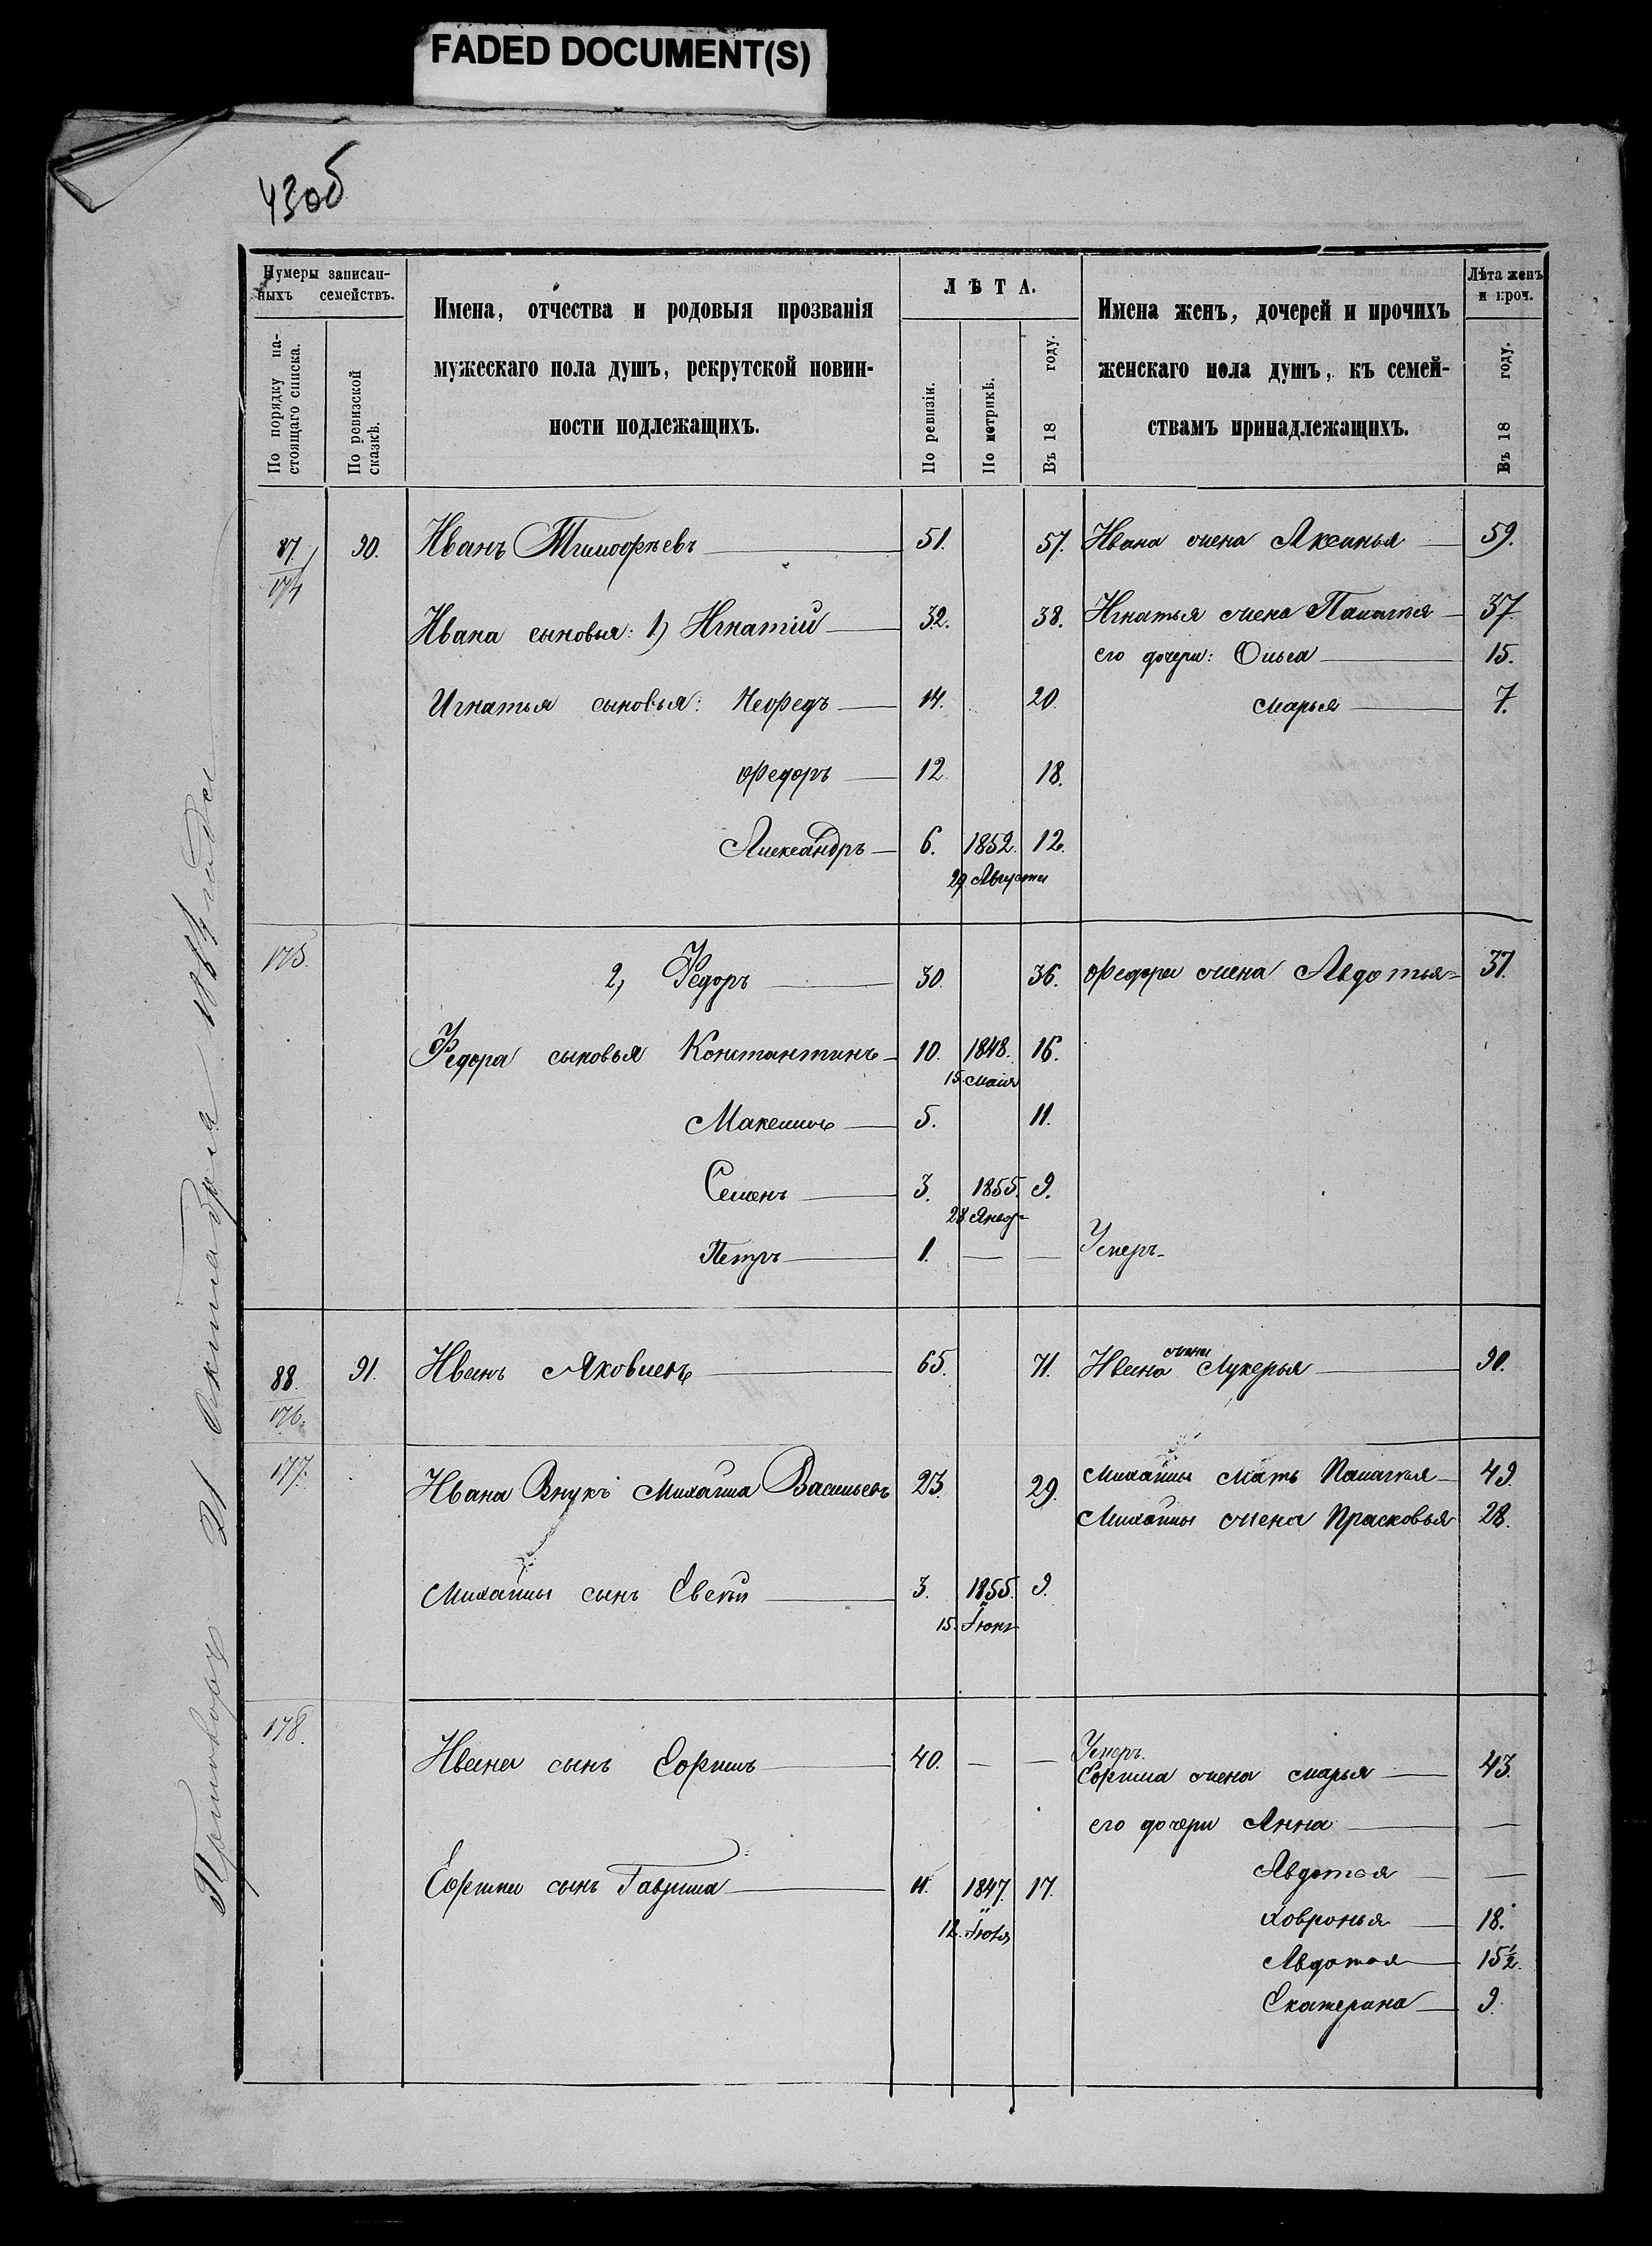 FADED DOCUMENT(S)
43об
Нумеры записан-
ныхъ семействъ.
По порядку на-
стоящаго списка.
По ревизской
сказкѣ.
Имена, отчества и родовыя прозванія
мужескаго пола душъ, рекрутской повин-
ности подлежащихъ.
ЛѢТА.
По ревизіи.
По метрикѣ.
Въ 18 году.
Имена женъ, дочерей и прочихъ
женскаго пола душъ, къ семей-
ствамъ принадлежащихъ.
Лѣта женъ
и проч.
Въ 18 году.
87 90. Иванъ Тимофѣевъ 51. 57. Ивана жена Аксинья 59.
174
Ивана сыновья: 1) Игнатій 32. 38. Игнатья жена Палагея 37.
его дочери: Ольга 15.
Игнатья сыновья: Нефедъ 14. 20. Марья 7.
Федоръ 12 18.
Александръ 6. 1852. 12.
29 Августа
175. 2, Федоръ 30. 36. Федора жена Авдотья 37.
Федора сыновья Константинъ 10. 1848. 16.
15 Мая
Максимъ 5. 11.
Семенъ 3. 1855. 9.
28 Янвр
Петръ 1. — — Умеръ
88. 91. Иванъ Яковлевъ 65. 71. Ивана жена Лукерья 90.
176.
177. Ивана Внукъ Михайла Васильевъ 23. 29. Михайлы Мать Палагея 49.
Михайлы жена Прасковья 28.
Михайлы сынъ Евсей 3. 1855. 9.
15. Іюня
178. Ивана сынъ Ефимъ 40. — — Умеръ.
Ефима жена Марья 43.
его дочери Анна —
Авдотья —
Ефима сынъ Гаврила 11. 1847. 17.
12. Іюля
Ховронья 18.
Авдотья 15½.
Екатерина 9.
21 Октября 1864 года